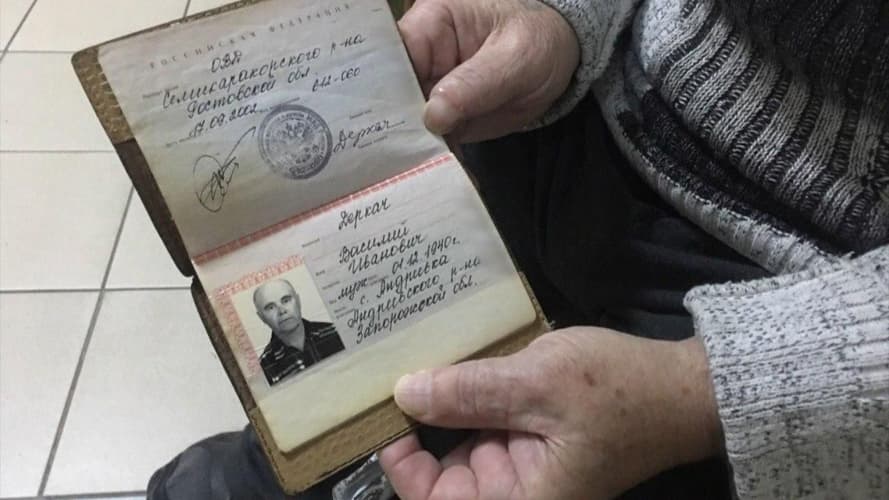 РОССИЙСКАЯ ФЕДЕРАЦИЯ
ОВД
Семикаракорского р-на
Ростовской обл.
17.09.2002 612-060
Деркач
Деркач
Василий
Иванович
муж 01.12.1940г.
с. Андривка
Андриевского р-на
Запорожской обл.